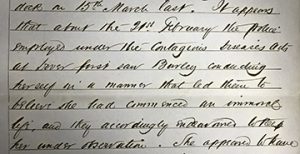 dock on 15th March last. It appears
that about the 21st February the police
employed under the Contagious Diseases Acts
at Dover first saw Burley conducting
herself in a manner that led them to
believe she had commenced an immoral
life, and they accordingly endeavoured to keep
her under observation. She appeared to have